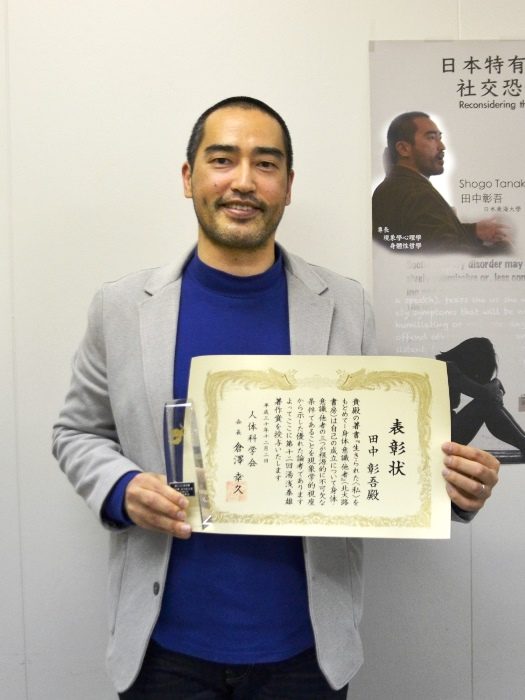 日本特有
社交恐
Reconsidering th
Shogo Tanak
田中彰吾
日本東海大學
專長
現象學心理學
身體性哲學
disorder may
表彰状
田中 彰吾殿
貴殿の著書『生きられた〈私〉を
もとめて―身体・意識・他者』(北大路
書房)は自己の成立にとって身体・
意識・他者の三つが根源的に不可欠な
条件であることを現象学的視座
から示した優れた論考であります
よってここに第十二回湯浅泰雄
著作賞を授与いたします
平成三十年十二月二日
人体科学会
会長 倉澤 幸久